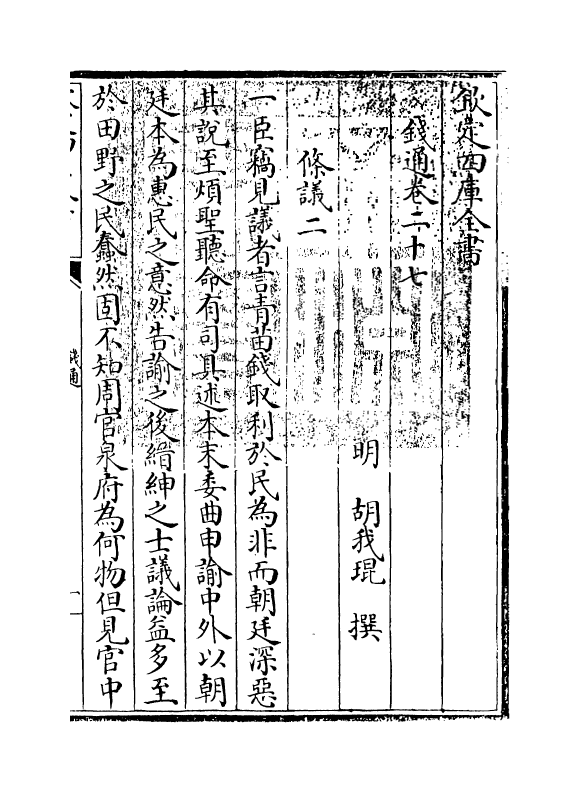 欽定四庫全書
錢通卷二十七
明 胡我琨 撰
條議二
一臣竊見議者言青苗錢取利於民為非而朝廷深惡
其說至煩聖聽命有司具述本末委曲申諭中外以朝
廷本為惠民之意然告諭之後縉紳之士議論益多至
於田野之民蠢然固不知周官泉府為何物但見官中
錢通
一